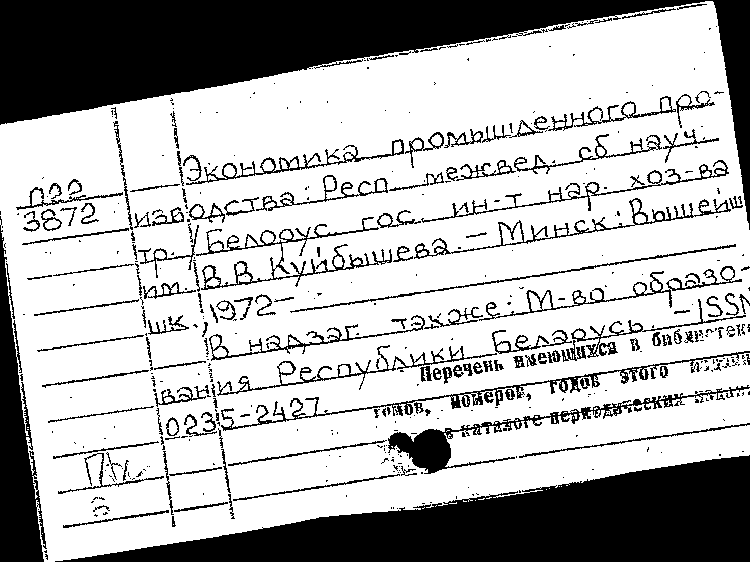 П22
3872
Экономика промышленного про-
изводства: Респ. межвед. сб науч.
тр. / Белорус. гос. ин-т нар. хоз-ва
им. В.В. Куйбышева. — Минск: Вышейш
шк., 1972 —
В надзаг. также: М-во образо-
вания Республики Беларусь. - ISSN
0235-2427.
Перечень имеющихся в библиотеке
томов, номеров, годов этого издания
в каталоге периодических изданий